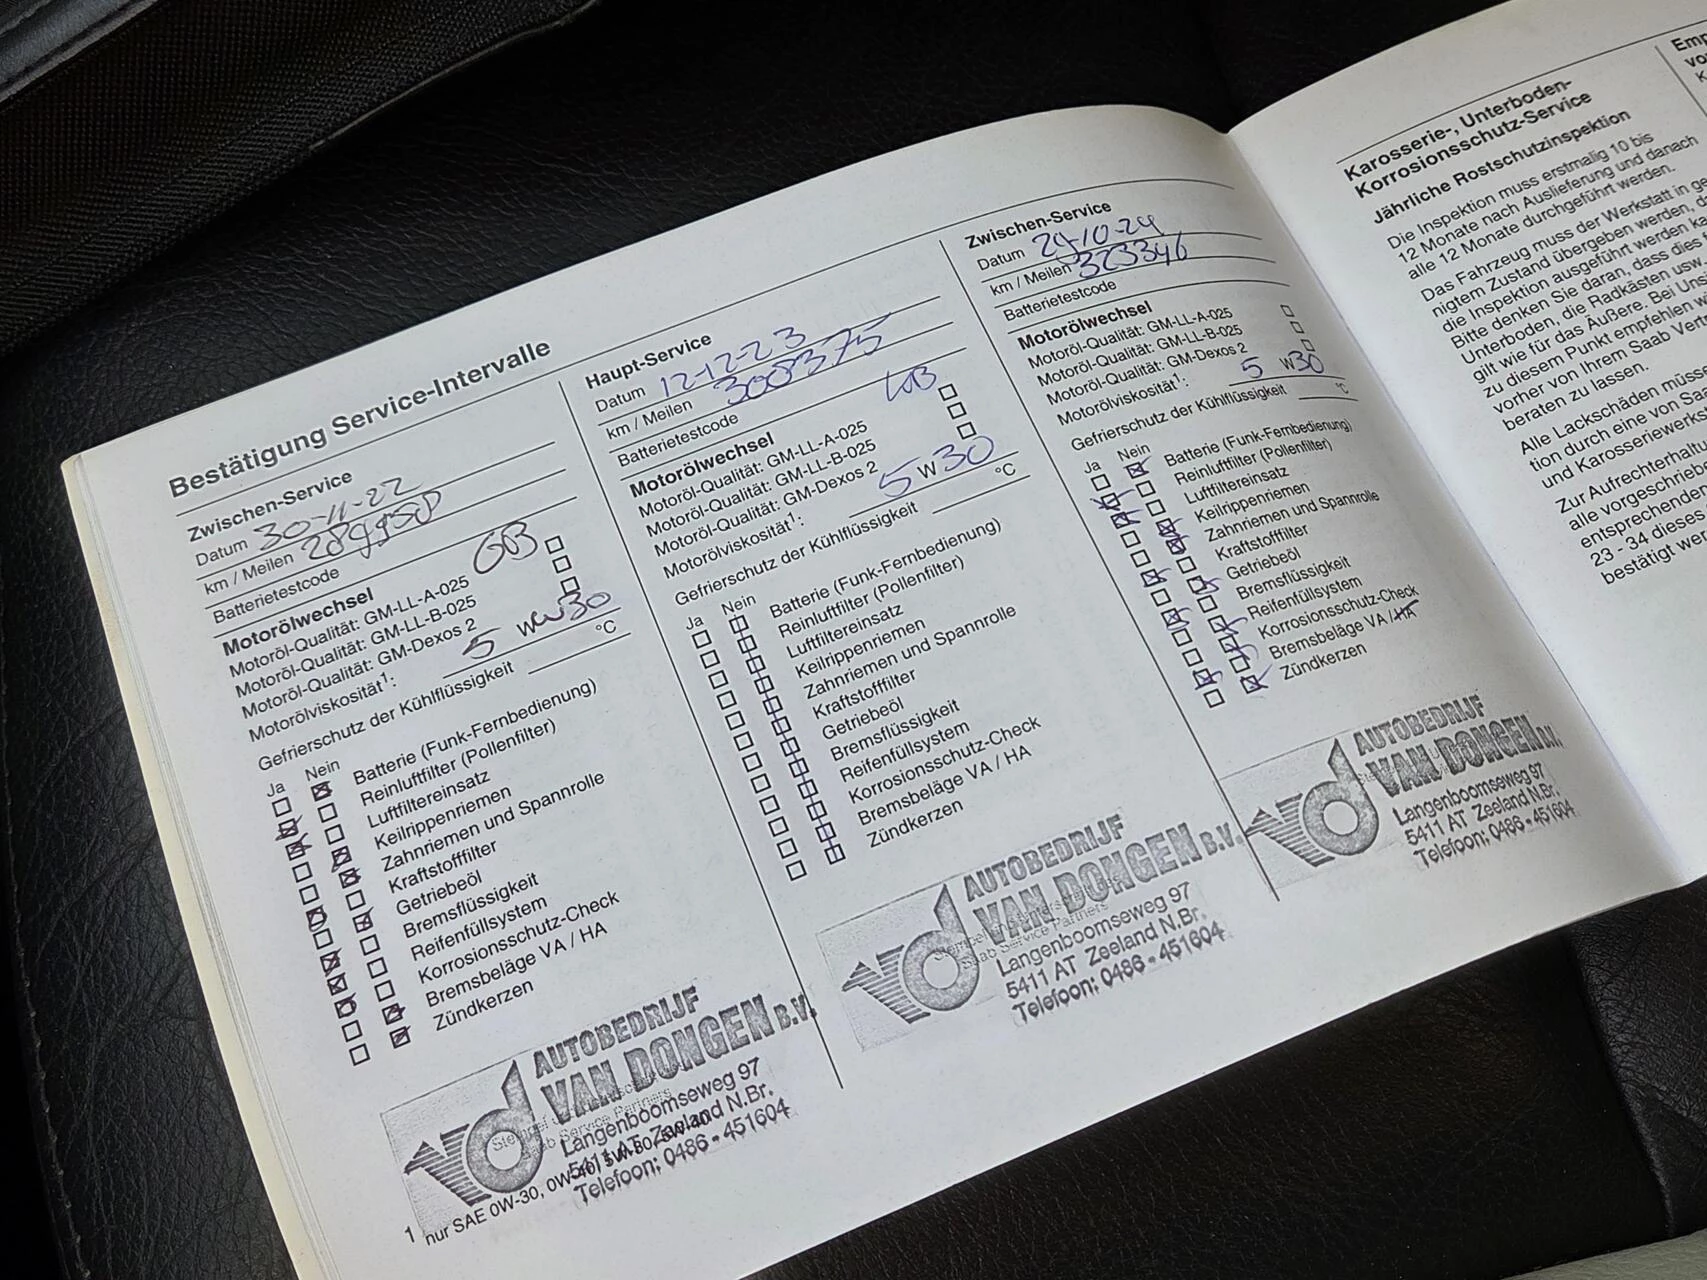 Bestätigung Service-Intervalle
Zwischen-Service
Datum 30-11-22
km / Meilen
Batterietestcode
Motorölwechsel
Motoröl-Qualität: GM-LL-A-025
Motoröl-Qualität: GM-LL-B-025
Motoröl-Qualität: GM-Dexos 2
Motorölviskosität¹: 5 W 30
Gefrierschutz der Kühlflüssigkeit °C
Ja Nein
Batterie (Funk-Fernbedienung)
Reinluftfilter (Pollenfilter)
Luftfiltereinsatz
Keilrippenriemen
Zahnriemen und Spannrolle
Kraftstofffilter
Getriebeöl
Bremsflüssigkeit
Reifenfüllsystem
Korrosionsschutz-Check
Bremsbeläge VA / HA
Zündkerzen
AUTOBEDRIJF
VAN DONGEN B.V.
Langenboomseweg 97
5411 AT Zeeland N.Br.
Telefoon: 0486-451604
1 nur SAE 0W-30, 0W-40, 5W-30, 5W-40
Haupt-Service
Datum 12-12-23
km / Meilen 308375
Batterietestcode
Motorölwechsel
Motoröl-Qualität: GM-LL-A-025
Motoröl-Qualität: GM-LL-B-025
Motoröl-Qualität: GM-Dexos 2
Motorölviskosität¹: 5 W 30
Gefrierschutz der Kühlflüssigkeit °C
Ja Nein
Batterie (Funk-Fernbedienung)
Reinluftfilter (Pollenfilter)
Luftfiltereinsatz
Keilrippenriemen
Zahnriemen und Spannrolle
Kraftstofffilter
Getriebeöl
Bremsflüssigkeit
Reifenfüllsystem
Korrosionsschutz-Check
Bremsbeläge VA / HA
Zündkerzen
AUTOBEDRIJF
VAN DONGEN B.V.
Langenboomseweg 97
5411 AT Zeeland N.Br.
Telefoon: 0486-451604
Zwischen-Service
Datum 29-10-24
km / Meilen 323346
Batterietestcode
Motorölwechsel
Motoröl-Qualität: GM-LL-A-025
Motoröl-Qualität: GM-LL-B-025
Motoröl-Qualität: GM-Dexos 2
Motorölviskosität¹: 5 W 30
Gefrierschutz der Kühlflüssigkeit °C
Ja Nein
Batterie (Funk-Fernbedienung)
Reinluftfilter (Pollenfilter)
Luftfiltereinsatz
Keilrippenriemen
Zahnriemen und Spannrolle
Kraftstofffilter
Getriebeöl
Bremsflüssigkeit
Reifenfüllsystem
Korrosionsschutz-Check
Bremsbeläge VA / HA
Zündkerzen
AUTOBEDRIJF
VAN DONGEN B.V.
Langenboomseweg 97
5411 AT Zeeland N.Br.
Telefoon: 0486-451604
Karosserie-, Unterboden-
Korrosionsschutz-Service
Jährliche Rostschutzinspektion
Die Inspektion muss erstmalig 10 bis
12 Monate nach Auslieferung und danach
alle 12 Monate durchgeführt werden.
Das Fahrzeug muss der Werkstatt in
nigtem Zustand übergeben werden,
die Inspektion ausgeführt werden
Bitte denken Sie daran, dass dies
Unterboden, die Radkästen usw.
gilt wie für das Äußere. Bei
zu diesem Punkt empfehlen
vorher von Ihrem Saab
beraten zu lassen.
Alle Lackschäden
tion durch eine von
und
Zur
alle
entsprechende
23 - 34 dieses
bestätigt